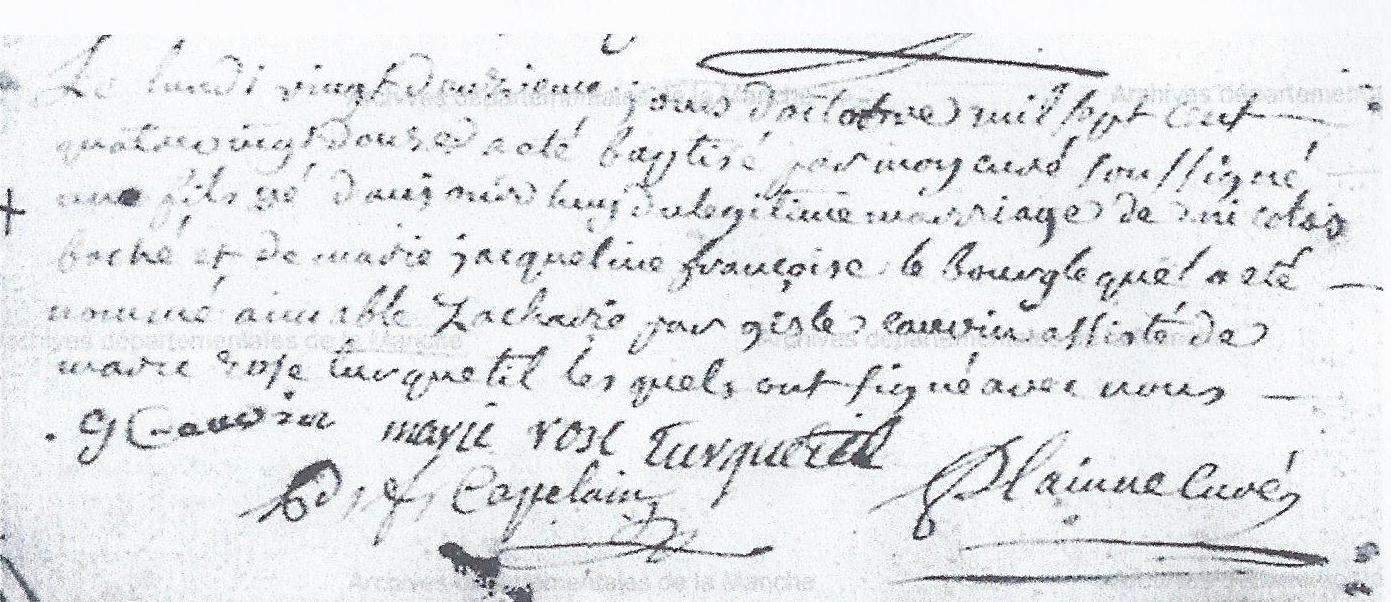 Le lundi vingt deuxieme jour d'octobre mil sept cent
quatre vingt douze a eté baptisé par moy curé soussigné
un fils né d'aujourdhuy du legitime marriage de nicolas
boché et de marie jacqueline françoise le bourg lequel a eté
nommé aimable Zacharie par gisle cauvin assisté de
marie rose turquetil lesquels ont signé avec nous
G Cauvin marie rose turquetil
Capelain
Blainne Curé
Archives départementales de la Manche
Archives départementales
Archives départementales de la Manche
Archives départementales de
Archives départementales de la Manche